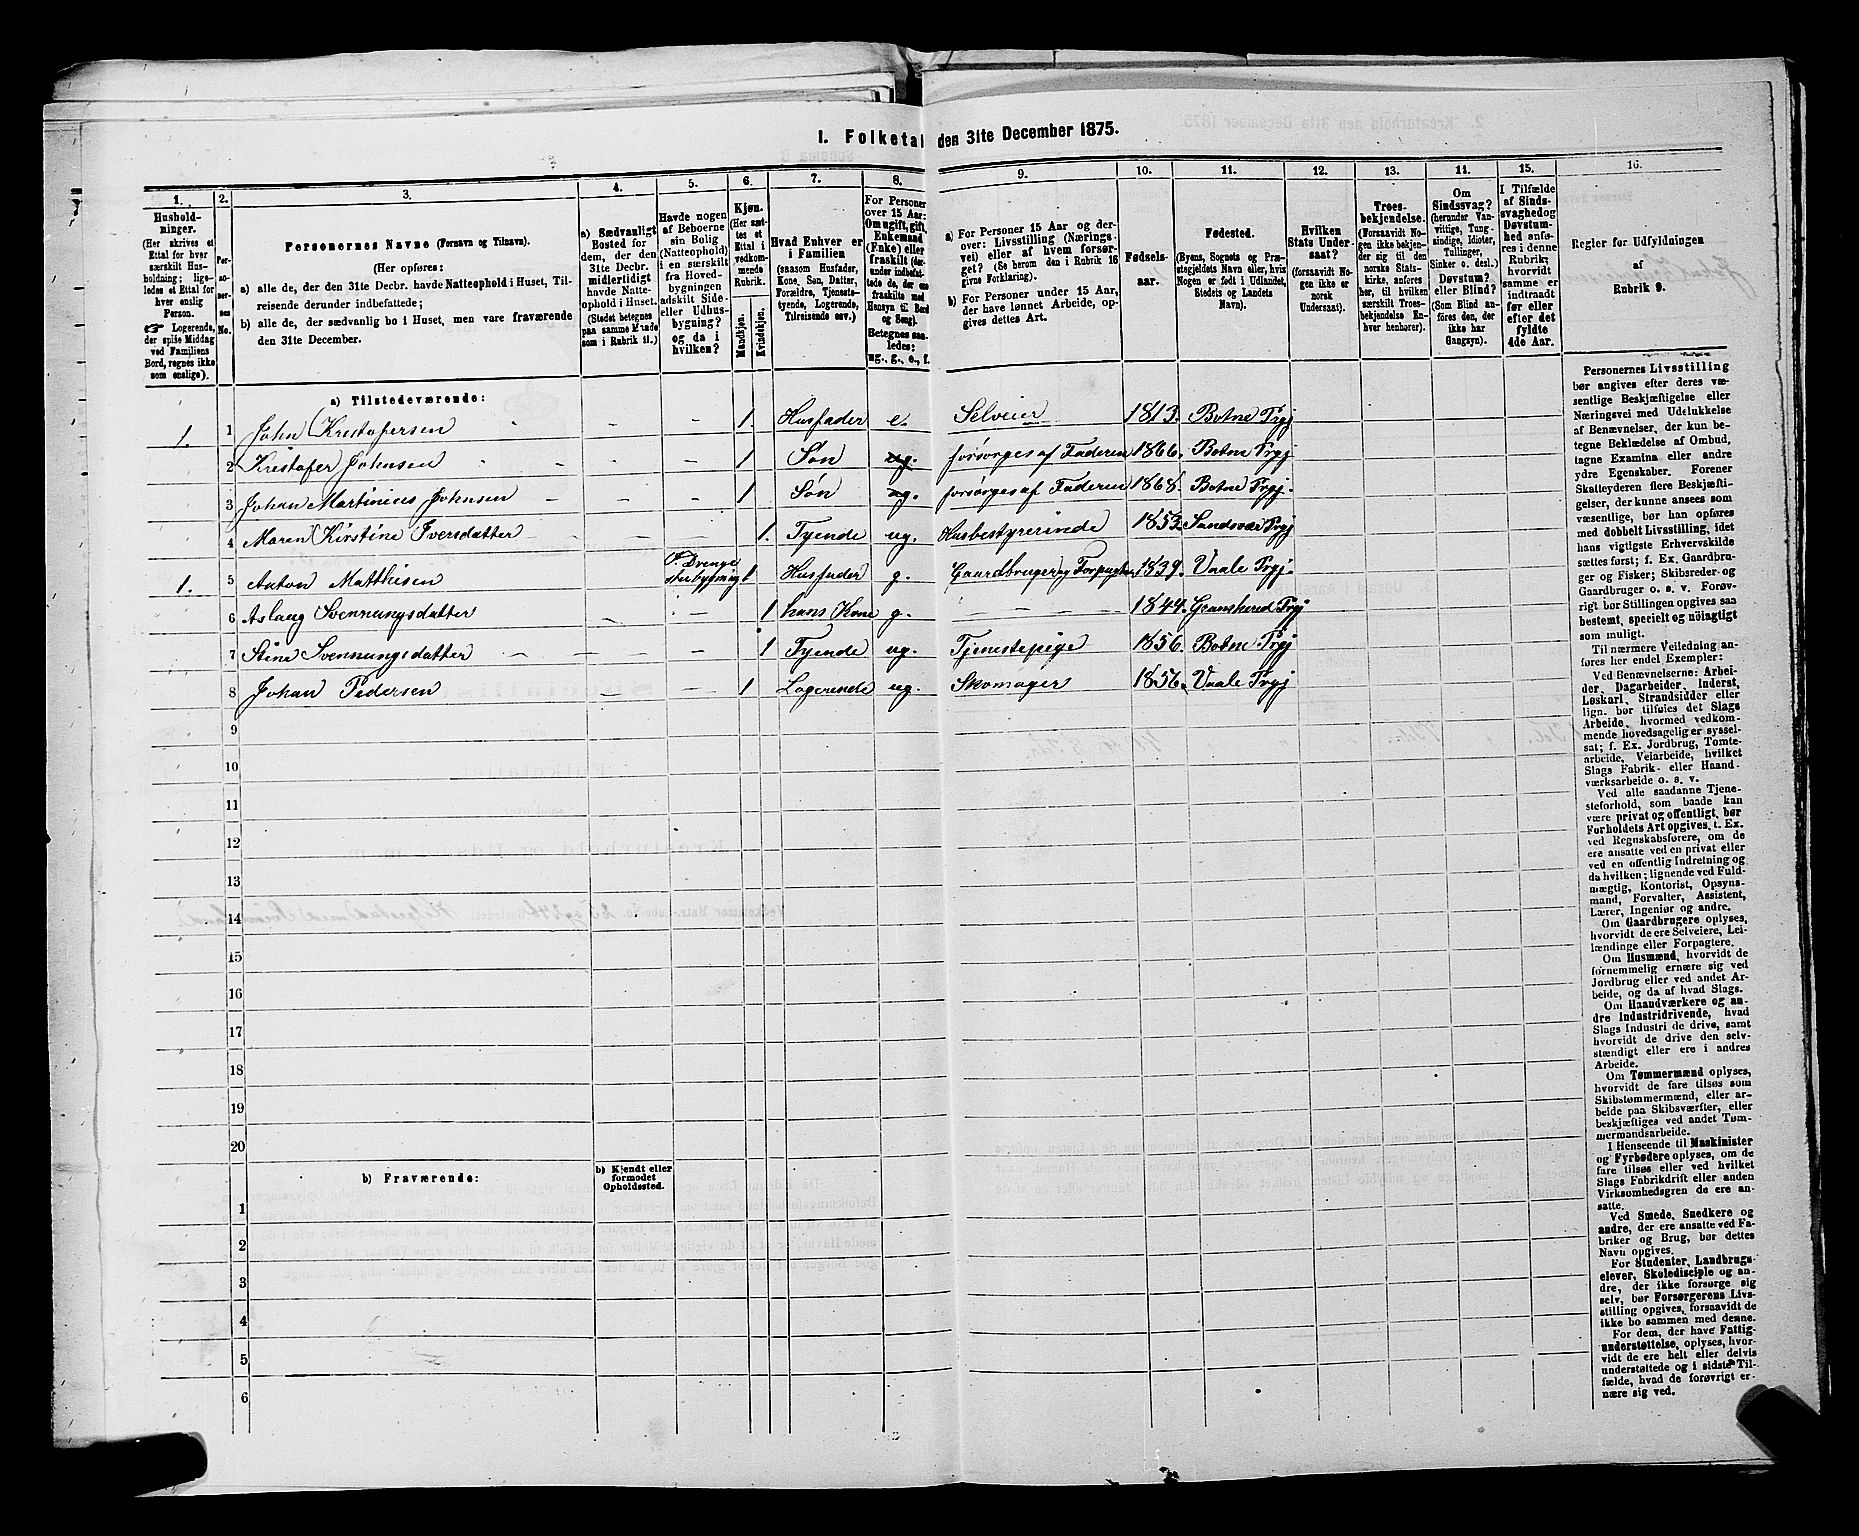 1. Folketal den 31te December 1875.
1. 2. 3. 4. 5. 6. 7. 8. 9. 10. 11. 12. 13. 14. 15. 16.
Hushold-
ninger.
(Her skrives et
Ettal for hver
særskilt Hus-
holdning; lige-
ledes et Ettal for
hver enslig
Person.
☞ Logerende,
der spise Middag
ved Familiens
Bord, regnes ikke
som enslige).
Personernes Navne (Fornavn og Tilnavn).
(Her opføres:
a) alle de, der den 31te Decbr. havde Natteophold i Huset, Til-
reisende derunder indbefattede;
b) alle de, der sædvanlig bo i Huset, men vare fraværende
den 31te December.
a) Sædvanligt
Bosted for
dem, der den
31te Decbr.
midlertidigt
havde Natte-
ophold i Huset.
(Stedet betegnes
paa samme Maade
som i Rubrik 11.)
Havde nogen
af Beboerne
sin Bolig
(Natteophold)
i en særskilt
fra Hoved-
bygningen
adskilt Side-
eller Udhus-
bygning?
og da i
hvilken?
Kjøn.
(Her sæt-
tes et
Ettal i
vedkom-
mende
Rubrik.
Mandkjøn.
Kvindekjøn.
Hvad Enhver er
i Familien
(saasom Husfader,
Kone, Søn, Datter,
Forældre, Tjeneste-
tyende, Logerende,
Tilreisende osv.)
For Personer
over 15 Aar:
Om ugift, gift,
Enkemand
(Enke) eller
fraskilt (der-
under indbefat-
tede de, der ere
fraskilte med
Hensyn til Bord
og Seng).
Betegnes saa-
ledes:
ug., g., e., f.
a) For Personer 15 Aar og der-
over: Livsstilling (Nærings-
vei) eller af hvem forsør-
get? (Se herom den i Rubrik 16
givne Forklaring).
b) For Personer under 15 Aar,
der have lønnet Arbeide, op-
gives dettes Art.
Fødsels-
aar.
Fødested.
(Byens, Sognets og Præ-
stegjeldets Navn eller, hvis
Nogen er født i Udlandet,
Stedets og Landets
Navn).
Hvilken
Stats Under-
saat?
(forsaavidt No-
gen ikke er
norsk
Undersaat).
Troes-
bekjendelse.
(Forsaavidt No-
gen ikke bekjen-
der sig til den
norske Stats-
kirke, anføres
her, til hvilken
særskilt Troes-
bekjendelse En-
hver henhører).
Om
Sindssvag?
(herunder Van-
vittige, Tung-
sindige, Idioter,
Tullinger,
Sinker o. desl.)
Døvstum?
eller Blind?
(Som Blind an-
føres den, der
ikke har
Gangsyn).
I Tilfælde
af Sinds-
svaghed og
Døvstum-
hed anfø-
res i denne
Rubrik;
hvorvidt
samme er
indtraadt
før eller
efter det
fyldte
4de Aar.
Regler for Udfyldningen
af
Rubrik 9.
a) Tilstedeværende:
1. 1 John Krestofersen - - 1 Husfader e. Selveier 1813. Botne Prgj
2 Kristofer Johnsen - - 1 Søn ug. forsørges af Faderen 1866. Botne Prgj
3 Johan Martinius Johnsen - - 1 Søn ug. forsørges af Faderen 1868. Botne Prgj.
4 Maren Kirstine Iversdatter - - 1. Tyende ug. Husbestyrerinde 1853. Sandsvær Prgj
1. 5 Anton Matthisen 1 Husfader g. Gaardbruger og Forpagter 1839. Vaale Prgj.
6 Aslaug Svennungsdatter - - 1 hans Kone g. - - - 1844. Gransherred Prgj
7 Stine Svennungsdatter - - 1 Tyende ug. Tjenestepige 1856. Botne Prgj
8 Johan Pedersen - - 1 Logerende ug. Skomager 1856. Vaale Prgj
9
10
11
12
13
14
15
16
17
18
19
20
b) Fraværende:
b) Kjendt eller
formodet
Opholdssted.
1
2
3
4
5
6
Personernes Livsstilling
bør angives efter deres væ-
sentlige Beskjæftigelse eller
Næringsvei med Udelukkelse
af Benævnelser, der kun be-
tegne Beklædelse af Ombud,
tagne Examina eller andre
ydre Egenskaber. Forener
Skatteyderen flere Beskjæfti-
gelser, der kunne ansees som
væsentlige, bør han opføres
med dobbelt Livsstilling, idet
hans vigtigste Erhvervskilde
sættes først; f. Ex. Gaardbru-
ger og Fisker; Skibsreder og
Gaardbruger o. s. v. Forøv-
rigt bør Stillingen opgives saa
bestemt, specielt og nøiagtigt
som muligt.
Til nærmere Veiledning an-
føres her endel Exempler:
Ved Benævnelserne: Arbei-
der, Dagarbeider, Inderst,
Løskarl, Strandsidder eller
lign. bør tilføies det Slags
Arbeide, hvormed vedkom-
mende hovedsagelig er syssel-
sat; f. Ex. Jordbrug, Tomte-
arbeide, Veiarbeide, hvilket
Slags Fabrik- eller Haand-
værksarbeide o. s. v.
Ved alle saadanne Tjene-
steforhold, som baade kan
være privat og offentligt, bør
Forholdets Art opgives, t. Ex.
ved Regnskabsførere, om de
ere ansatte ved en privat eller
ved en offentlig Indretning og
da hvilken; lignende ved Fuld-
mægtig, Kontorist, Opsyns-
mand, Forvalter, Assistent,
Lærer, Ingeniør og andre.
Om Gaardbrugere oplyses,
hvorvidt de ere Selveiere, Lei-
lændinge eller Forpagtere.
Om Husmænd, hvorvidt de
fornemmelig ernære sig ved
Jordbrug eller ved andet Ar-
beide, og da af hvad Slags.
Om Haandværkere og an-
dre Industridrivende, hvad
Slags Industri de drive, samt
hvorvidt de drive den selv-
stændigt eller ere i andres
Arbeide.
Om Tømmermænd oplyses,
hvorvidt de fare tilsøs som
Skibstømmermænd, eller ar-
beide paa Skibsværfter, eller
beskjæftiges ved andet Tøm-
mermandsarbeide.
I Henseende til Maskinister
og Fyrbødere oplyses, om de
fare tilsøs eller ved hvilket
Slags Fabrikdrift eller anden
Virksomhedsgren de ere an-
satte.
Ved Smede, Snedkere og
andre, der ere ansatte ved Fa-
briker og Brug, bør dettes
Navn opgives.
For Studenter, Landbrugs-
elever, Skoledisciple og an-
dre, der ikke forsørge sig
selv, bør Forsørgerens Livs-
stilling opgives, forsaavidt de
ikke bo sammen med denne.
For dem, der have Fattig-
understøttelse, oplyses, hvor-
vidt de ere helt eller delvis
understøttede og i sidste Til-
fælde, hvad de forøvrigt er-
nære sig ved.